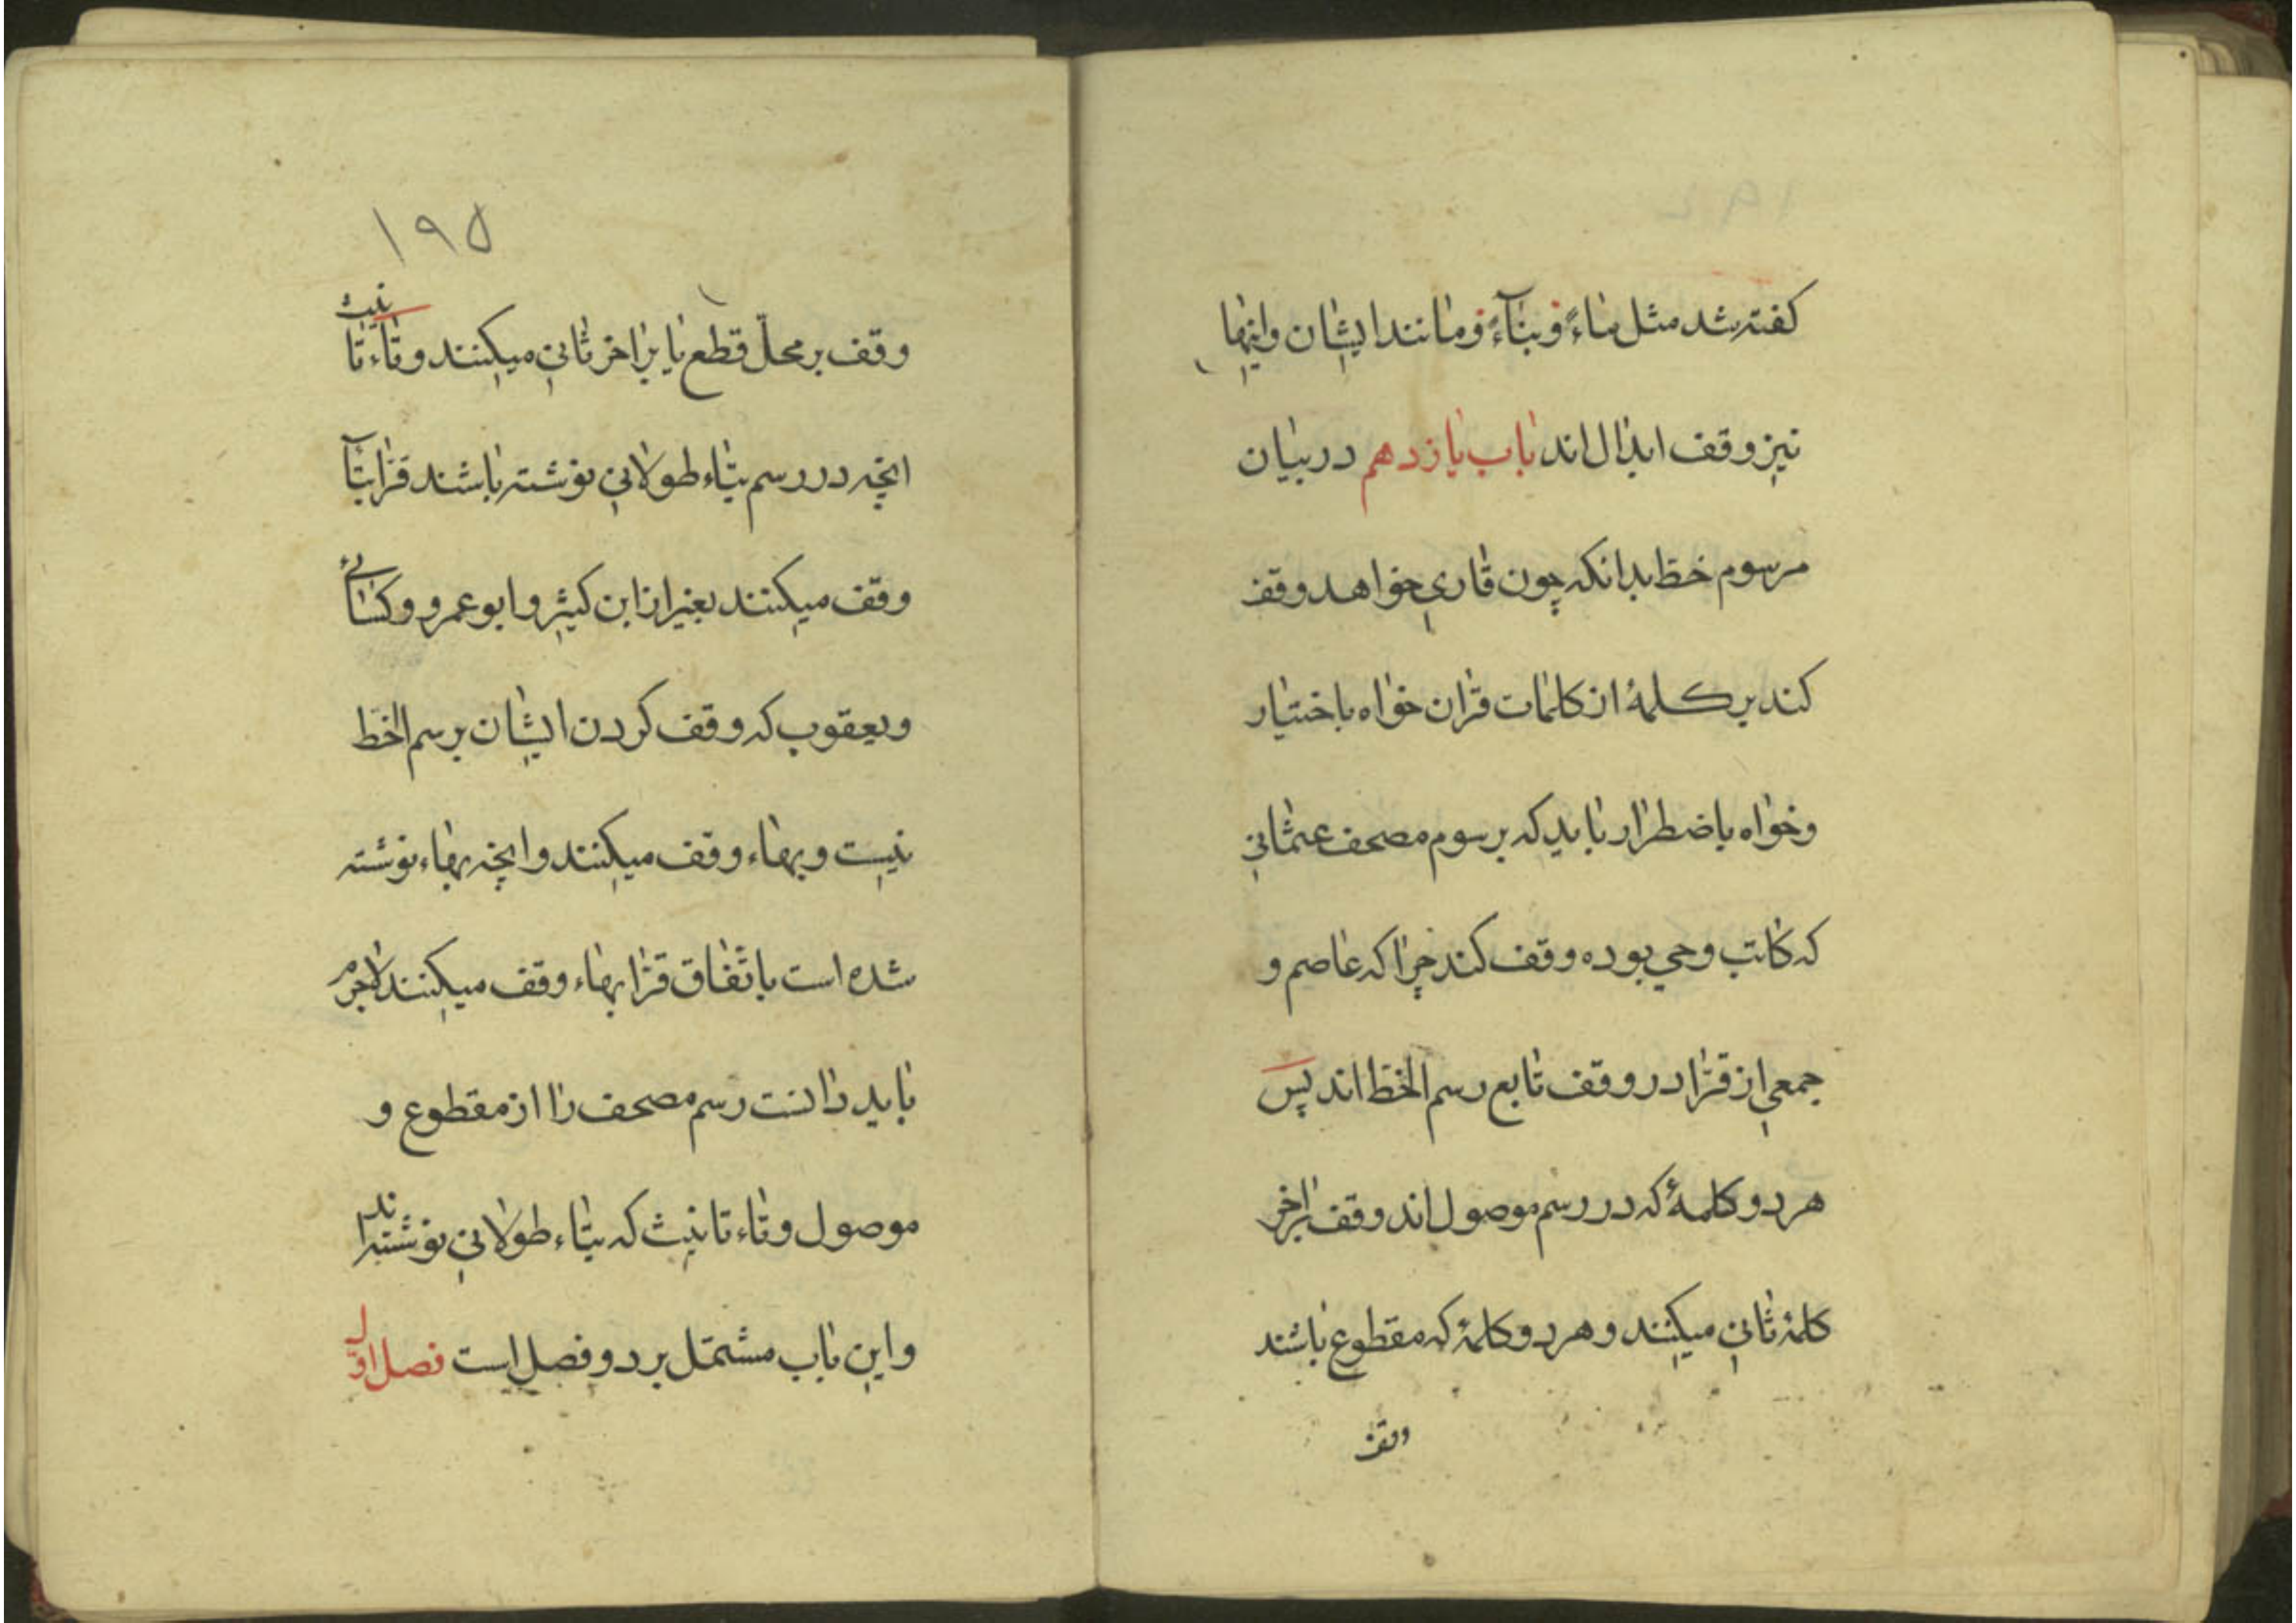 کفته شد مثل مٰاءً و بنٰآءً و مٰانند ایشٰان و اینهٰا
نیز وقف ابدٰال اند بٰاب یٰازدهم در بیٰان
مرسوم خظ بدانکه چون قٰاری خواهد وقف
کند بر کلمهٔ از کلمٰات قرٰان خوٰاه باختیٰار
و خوٰاه باضطرٰار بٰاید که برسوم مصحف عثمٰانی
که کٰاتب وحی بوده وقف کند چرٰا که عٰاصم و
جمعی از قرّٰا در وقف تٰابع رسم الخظ اند پس
هر دو کلمهٔ که در رسم موصول اند وقف برٰاخر
کلمهٔ ثٰانی میکنند و هر دو کلمهٔ که مقطوع بٰاشند
وقف
۱۹۵
وقف بر محلّ قطع یٰا برٰاخر ثٰانی میکنند و تٰاء تٰانیث
انچه در رسم بتٰاء طولٰانی نوشته بٰاشند قرّٰا بتٰآ
وقف میکنند بغیر از ابن کثیر و ابو عمرو و کسٰائی
و یعقوب که وقف کردن ایشٰان برسم الخظ
نیست و بهٰاء وقف میکنند و انچه بهٰاء نوشته
شده است باتّفٰاق قرّٰا بهٰاء وقف میکنند لاجرم
بٰاید دٰانست رسم مصحف رٰا از مقطوع و
موصول و تٰاء تٰانیث که بتٰاء طولٰانی نوشته‌اند
و این بٰاب مشتمل بر دو فصل است فصل اوّل